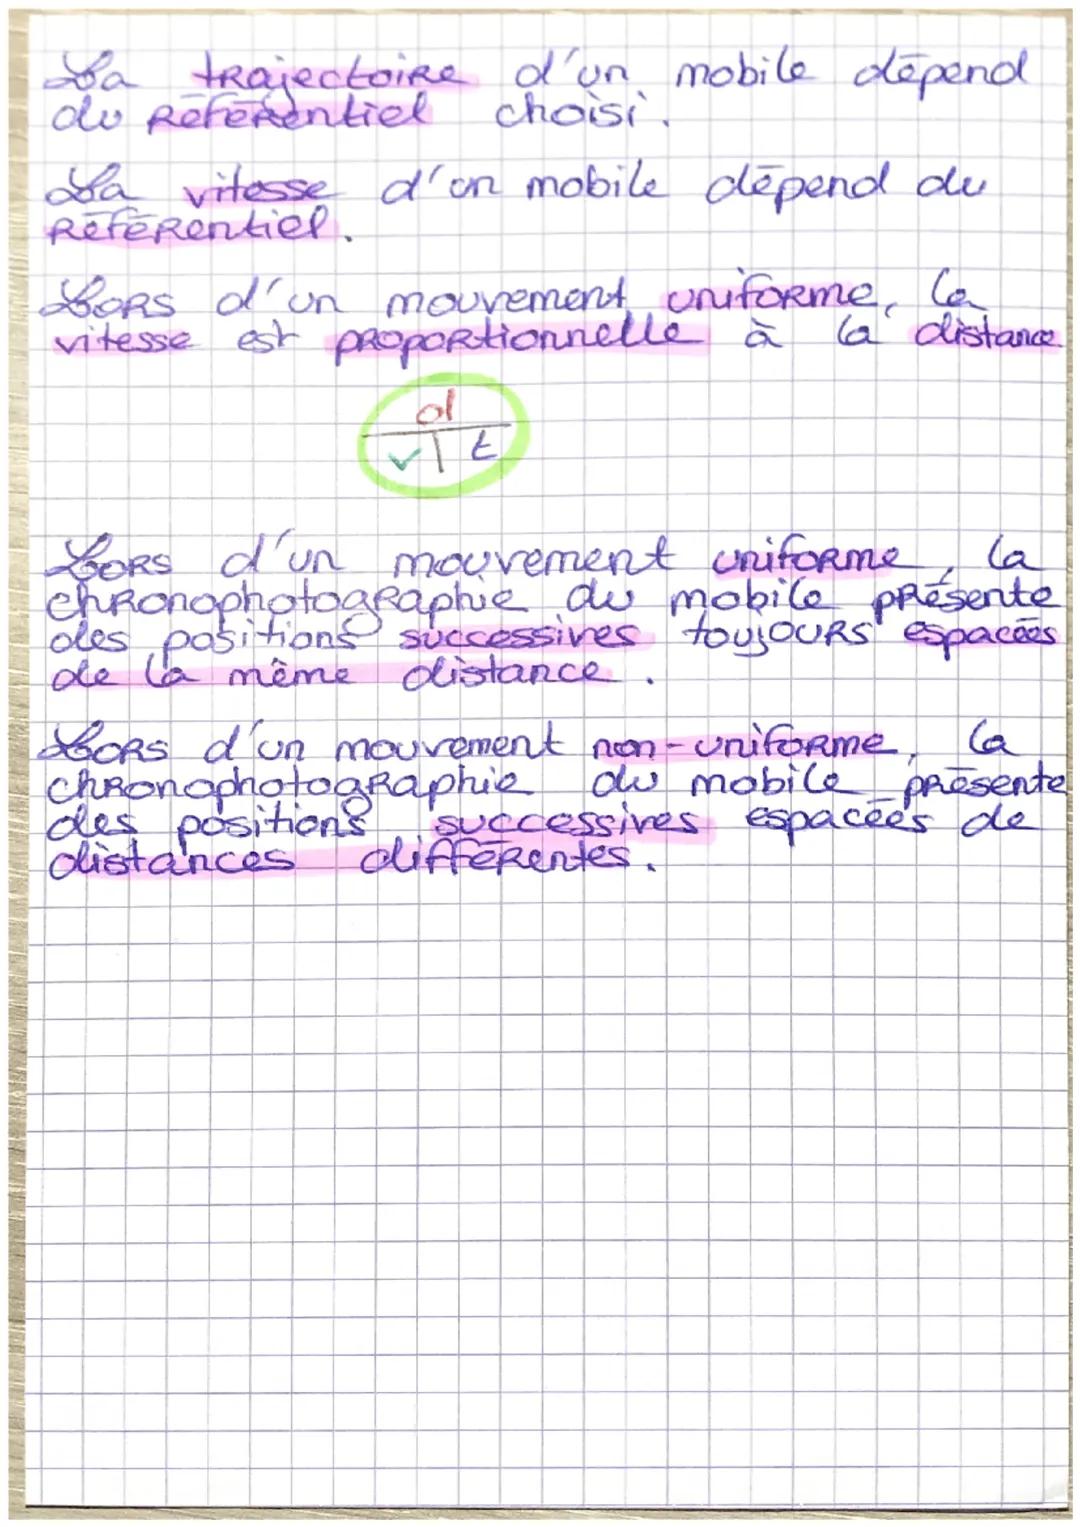 La trajectoire d'un mobile dépend
du référentiel choisi.
La vitesse d'un mobile dépend du
référentiel.
Lors d'un mouvement uniforme, la
vitesse est proportionnelle à la distance
d
v t
Lors d'un mouvement uniforme, la
chronophotographie du mobile présente
des positions successives toujours espacées
de la même distance.
Lors d'un mouvement non-uniforme, la
chronophotographie du mobile présente
des positions successives espacées de
distances différentes.